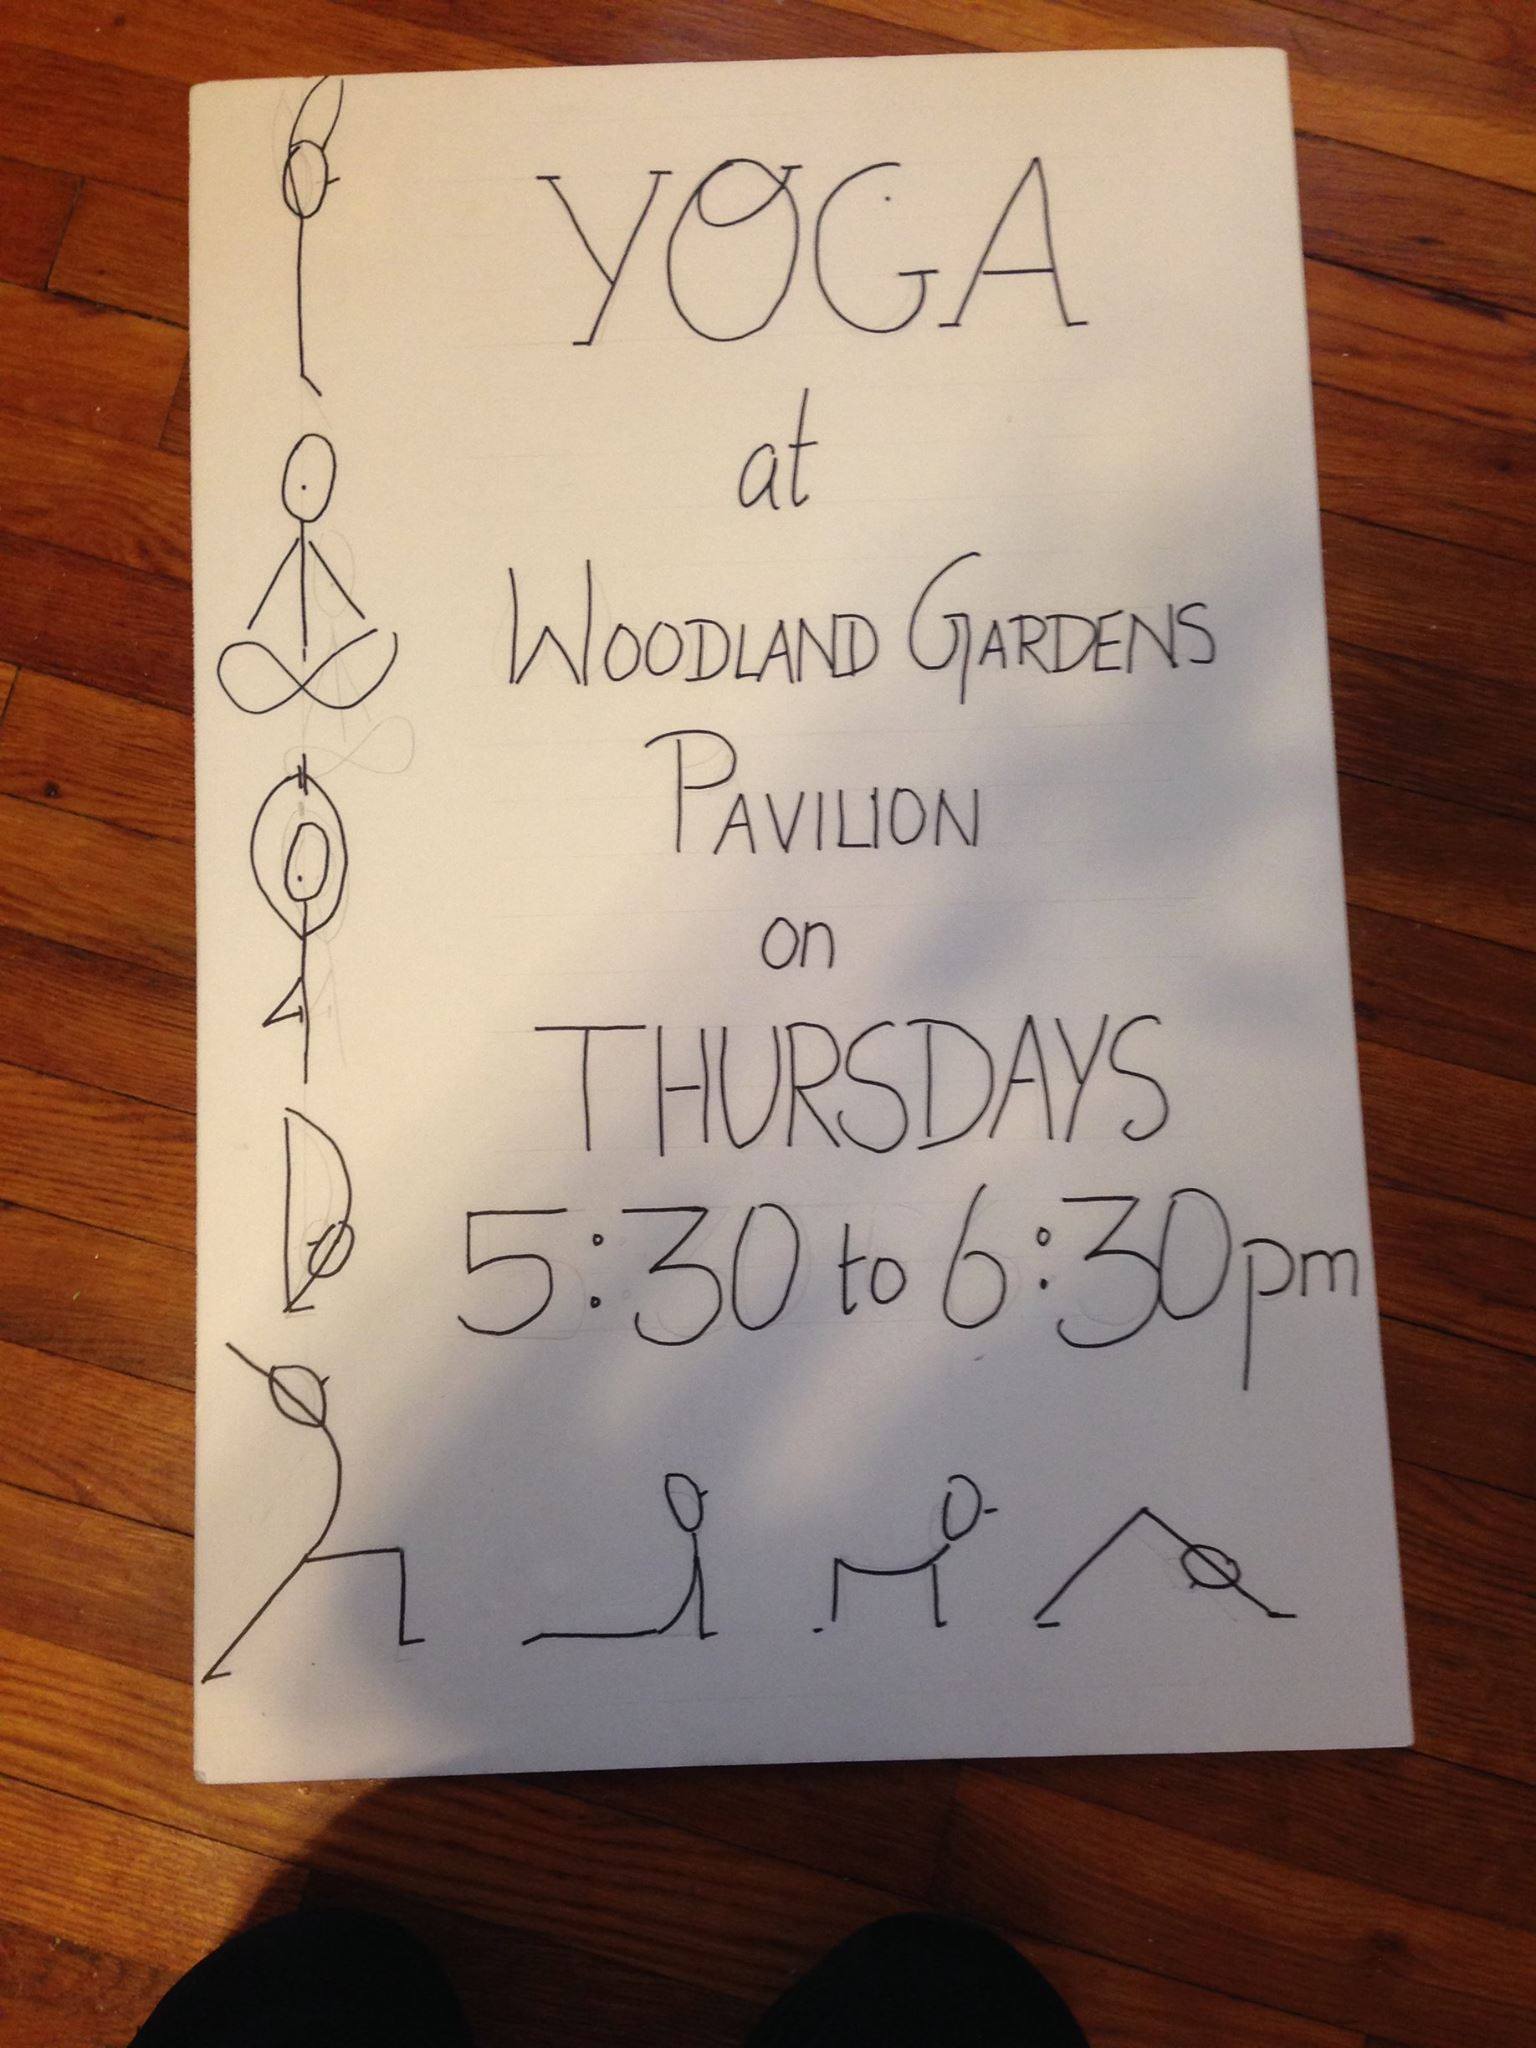 YOGA
at
WOODLAND GARDENS
PAVILION
on
THURSDAYS
5:30 to 6:30pm